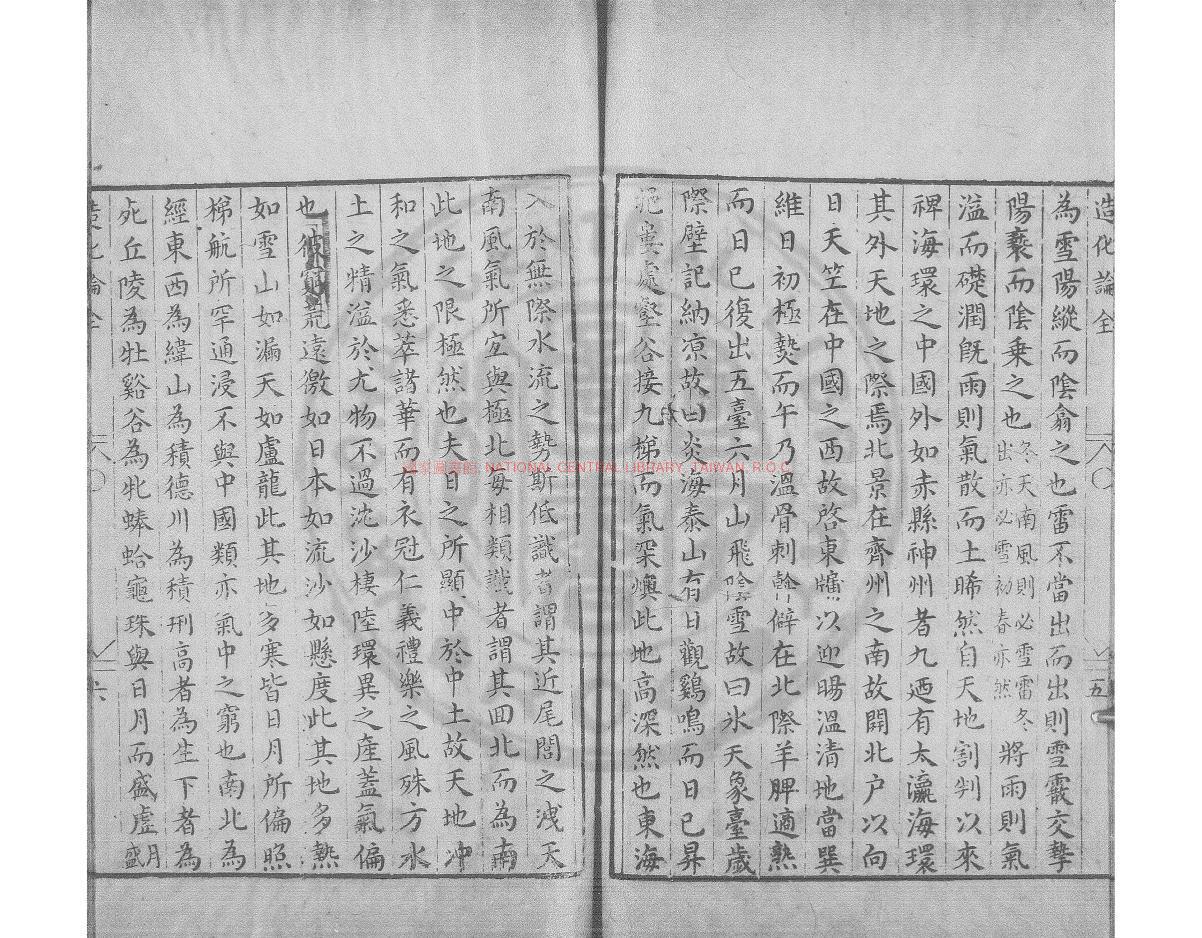 造化論全
五
為雪陽縱而陰翕之也雷不當出而出則雪霰交摯
陽褻而陰乘之也冬天南風則必雪雷冬出亦必雪初春亦然將雨則氣
溢而礎潤既雨則氣散而土晞然自天地割判以來
裨海環之中國外如赤縣神州者九迺有太瀛海環
其外天地之際焉北景在齊州之南故開北户以向
日天竺在中國之西故啓東牖以迎暘溫清地當巽
維日初極𤎅而午乃溫骨刺幹僻在北際羊胛適熟
而日已復出五臺六月山飛陰雪故曰氷天象臺歲
際壁記納凉故曰炎海泰山有日觀鷄鳴而日已昇
處壑谷接九梯而氣罙燠此地高深然也東海
入於無際水流之勢斯低識者謂其近尾閭之洩天
南風氣所宜與極北每相類識者謂其回北而為南
此地之限極然也夫日之所顯中於中土故天地冲
和之氣悉萃諸華而有衣冠仁義禮樂之風殊方水
土之精溢於尤物不過沈沙棲陸環異之產蓋氣偏
也彼窮荒遠徼如日本如流沙如懸度此其地多熱
如雪山如漏天如盧龍此其地多寒皆日月所偏照
梯航所罕通浸不與中國類亦氣中之窮也南北為
經東西為緯山為積德川為積刑高者為生下者為
死丘陵為牡谿谷為牝蜯蛤龜珠與日月而盛虛月盛
造化論全
六
國家圖書館 NATIONAL CENTRAL LIBRARY, TAIWAN, R.O.C.